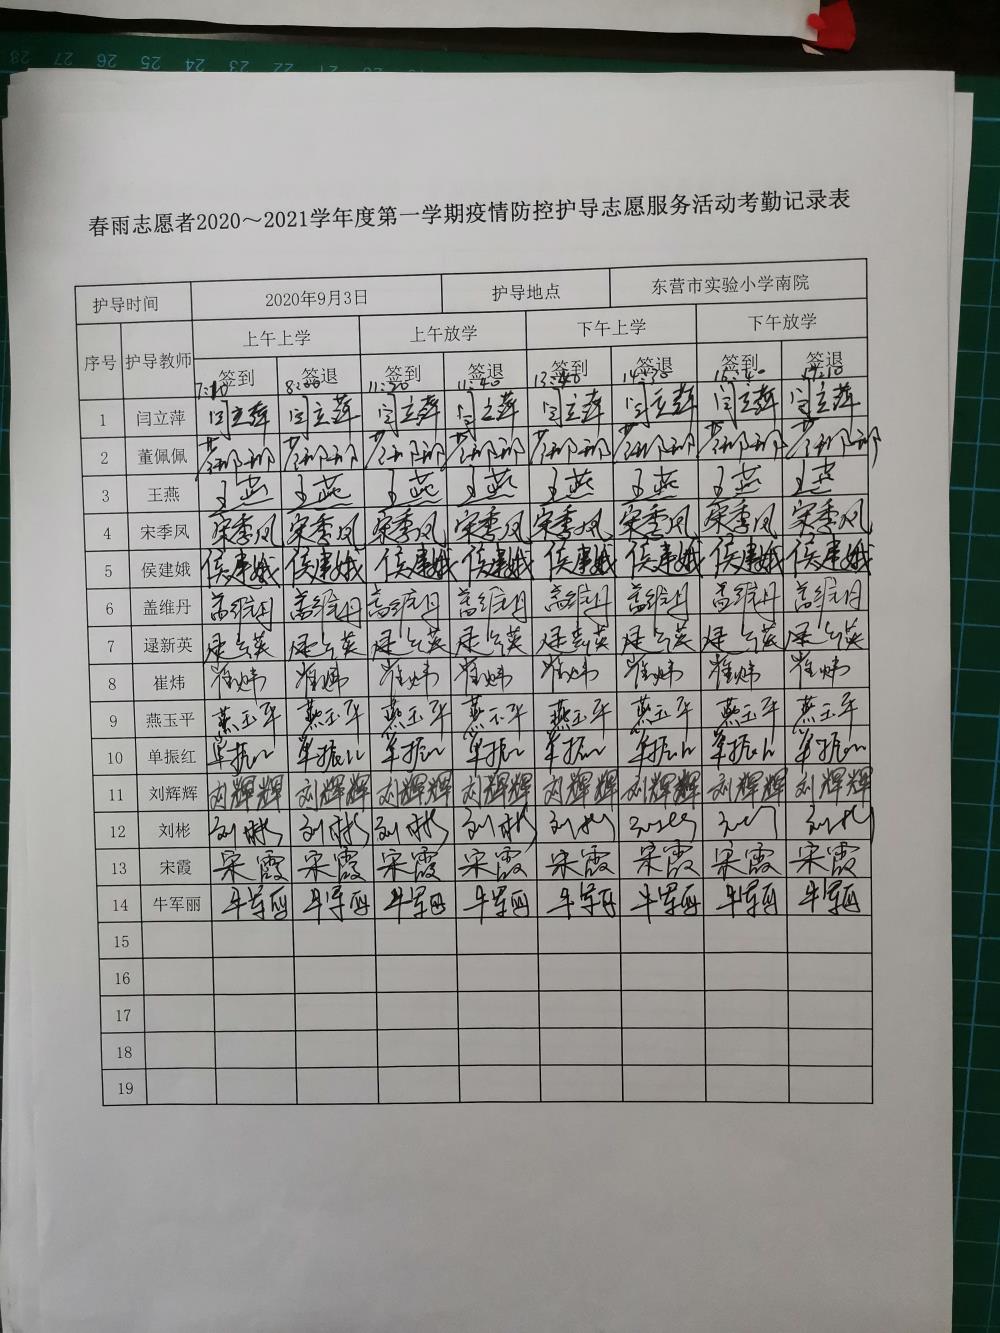 28 27 26 25 24 23 22 21
春雨志愿者2020～2021学年度第一学期疫情防控护导志愿服务活动考勤记录表
护导时间 2020年9月3日 护导地点 东营市实验小学南院
序号 护导教师 上午上学 上午放学 下午上学 下午放学
签到 签退 签到 签退 签到 签退 签到 签退
8:00 11:20 11:40 14:30 16:40 17:10
1 闫立萍 闫立萍 闫立萍 闫立萍 闫立萍 闫立萍 闫立萍 闫立萍 闫立萍
2 董佩佩 董佩佩 董佩佩 董佩佩 董佩佩 董佩佩 董佩佩 董佩佩 董佩佩
3 王燕 王燕 王燕 王燕 王燕 王燕 王燕 王燕 王燕
4 宋季凤 宋季凤 宋季凤 宋季凤 宋季凤 宋季凤 宋季凤 宋季凤 宋季凤
5 侯建娥 侯建娥 侯建娥 侯建娥 侯建娥 侯建娥 侯建娥 侯建娥 侯建娥
6 盖维丹 盖维丹 盖维丹 盖维丹 盖维丹 盖维丹 盖维丹 盖维丹 盖维丹
7 逯新英 逯新英 逯新英 逯新英 逯新英 逯新英 逯新英 逯新英 逯新英
8 崔炜 崔炜 崔炜 崔炜 崔炜 崔炜 崔炜 崔炜 崔炜
9 燕玉平 燕玉平 燕玉平 燕玉平 燕玉平 燕玉平 燕玉平 燕玉平 燕玉平
10 单振红 单振红 单振红 单振红 单振红 单振红 单振红 单振红 单振红
11 刘辉辉 刘辉辉 刘辉辉 刘辉辉 刘辉辉 刘辉辉 刘辉辉 刘辉辉 刘辉辉
12 刘彬 刘彬 刘彬 刘彬 刘彬 刘彬 刘彬 刘彬 刘彬
13 宋霞 宋霞 宋霞 宋霞 宋霞 宋霞 宋霞 宋霞 宋霞
14 牛军丽 牛军丽 牛军丽 牛军丽 牛军丽 牛军丽 牛军丽 牛军丽 牛军丽
15
16
17
18
19